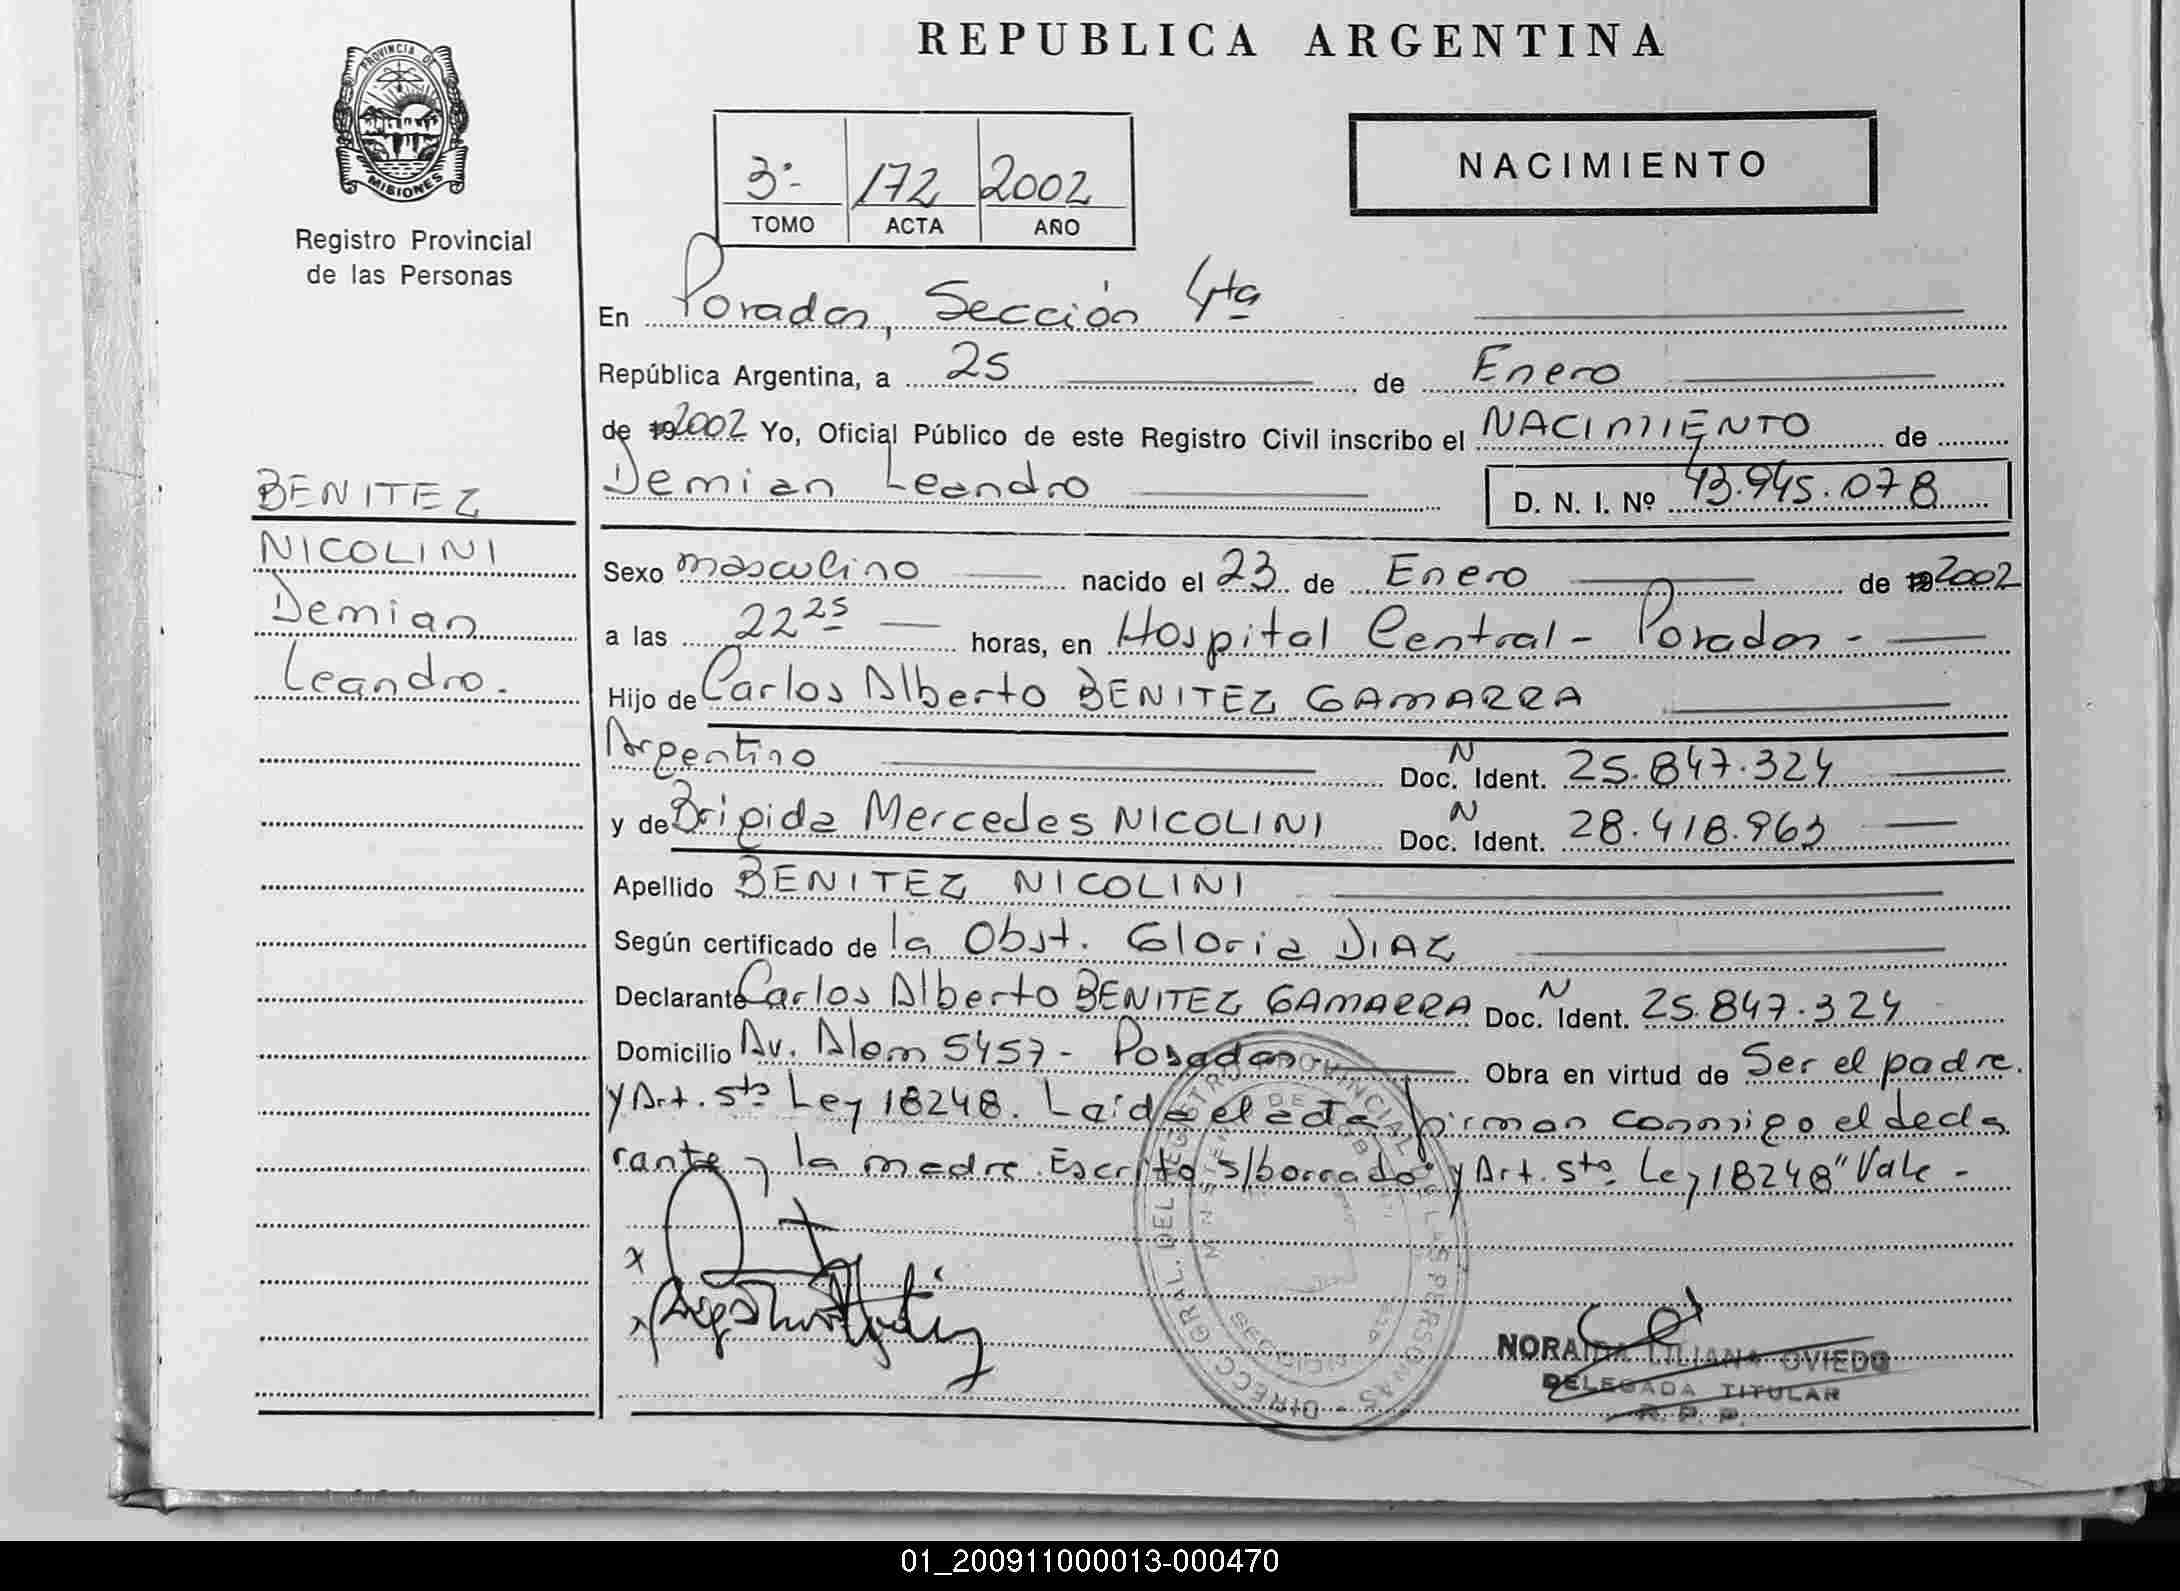 REPUBLICA ARGENTINA
PROVINCIA DE
MISIONES
Registro Provincial
de las Personas
3º- 172 2002
TOMO ACTA AÑO
NACIMIENTO
En Posadas, Sección 4ta
República Argentina, a 25 de Enero
de 19 2002 Yo, Oficial Público de este Registro Civil inscribo el NACIMIENTO de
Demian Leandro D. N. I. Nº 43.945.078
BENITEZ
NICOLINI
Demian
Leandro.
Sexo masculino nacido el 23 de Enero de 19 2002
a las 22 25 horas, en Hospital Central - Posadas -
Hijo de Carlos Alberto BENITEZ GAMARRA
Argentino Doc. N Ident. 25.847.324
y de Brigida Mercedes NICOLINI Doc. N Ident. 28.418.963
Apellido BENITEZ NICOLINI
Según certificado de la Obst. Gloria DIAZ
Declarante Carlos Alberto BENITEZ GAMARRA Doc. N Ident. 25.847.324
Domicilio Av. Alem 5457 - Posadas Obra en virtud de Ser el padre.
y Art. 5to Ley 18248. Leída el acta firman conmigo el decla
rante y la madre. Escrito s/borrado "y Art. 5to. Ley 18248" Vale -
DIRECC. GRAL. DEL REGISTRO PROVINCIAL DE LAS PERSONAS
NORAIDA LILIANA OVIEDO
DELEGADA TITULAR
R. P. P.
01_200911000013-000470